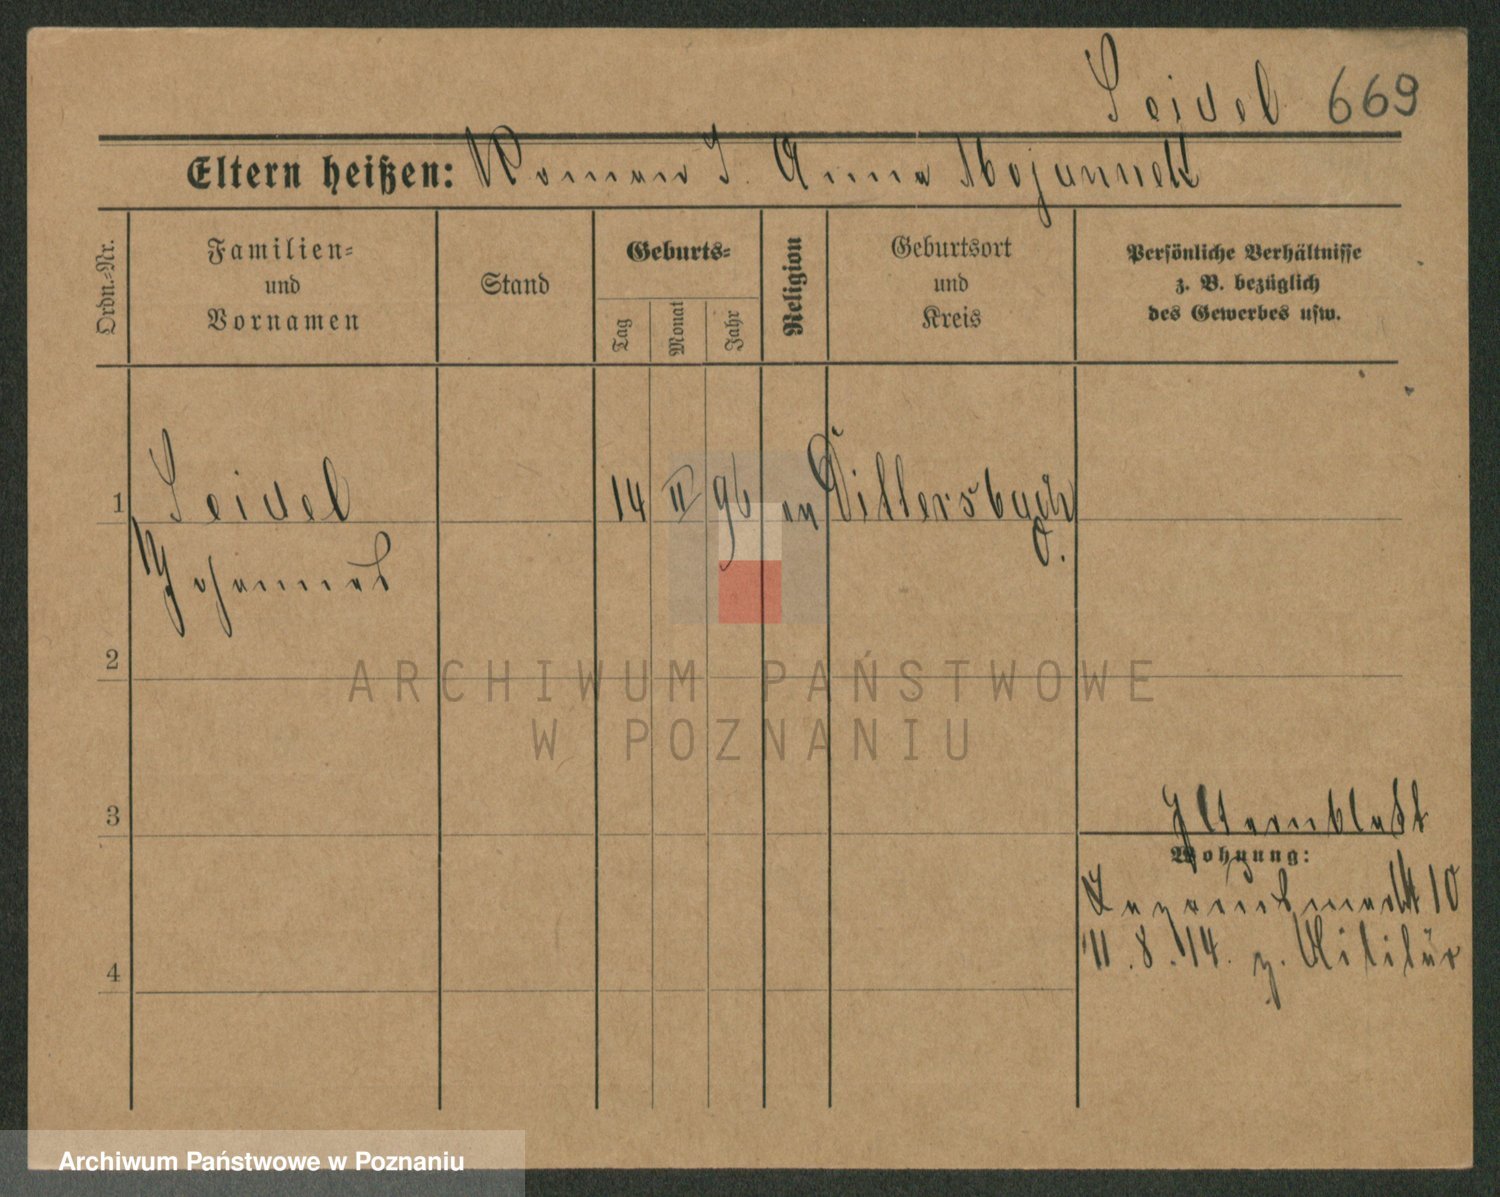 Seidel 669
Eltern heißen: Roman S. Anna
Ordn.-Nr.
Familien-
und
Vornamen
Stand
Geburts-
Tag
Monat
Jahr
Religion
Geburtsort
und
Kreis
Persönliche Verhältnisse
z. B. bezüglich
des Gewerbes usw.
1 Seidel 14 II 96 ev Dittersbach
Johannes O.
2
ARCHIWUM PAŃSTWOWE
W POZNANIU
3 Elternblatt
Wohnung:
10
11.8.14. z. Militär
4
Archiwum Państwowe w Poznaniu